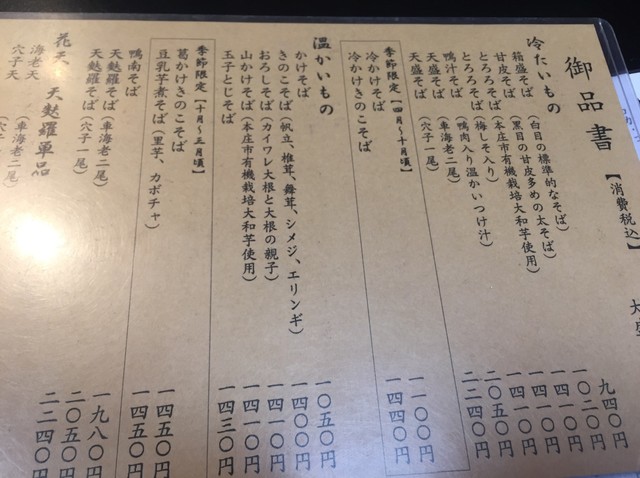 御品書
【消費税込】
大盛
冷たいもの
箱盛そば(白目の標準的なそば) 九四〇円
甘皮そば(黒目の甘皮多めの太そば) 一〇二〇円
とろろそば(本庄市有機栽培大和芋使用) 一四一〇円
とろろそば(梅しそ入り) 一四一〇円
鴨汁そば(鴨肉入り温かいつけ汁) 一四一〇円
天盛そば(車海老二尾) 二〇五〇円
天盛そば(穴子一尾) 二二四〇円
季節限定【四月〜十月頃】
冷かけそば 一一〇〇円
冷かけきのこそば 一四四〇円
温かいもの
かけそば 一〇五〇円
きのこそば(帆立、椎茸、舞茸、シメジ、エリンギ) 一四〇〇円
おろしそば(カイワレ大根と大根の親子) 一四一〇円
山かけそば(本庄市有機栽培大和芋使用) 一四一〇円
玉子とじそば 一四三〇円
季節限定【十月〜三月頃】
葛かけきのこそば 一四五〇円
豆乳芋煮そば(里芋、カボチャ) 一四五〇円
鴨南そば 一九八〇円
天麩羅そば(車海老二尾) 二〇五〇円
天麩羅そば(穴子一尾) 二二四〇円
花天 天麩羅単品
海老天(車海老二尾)
穴子天(穴